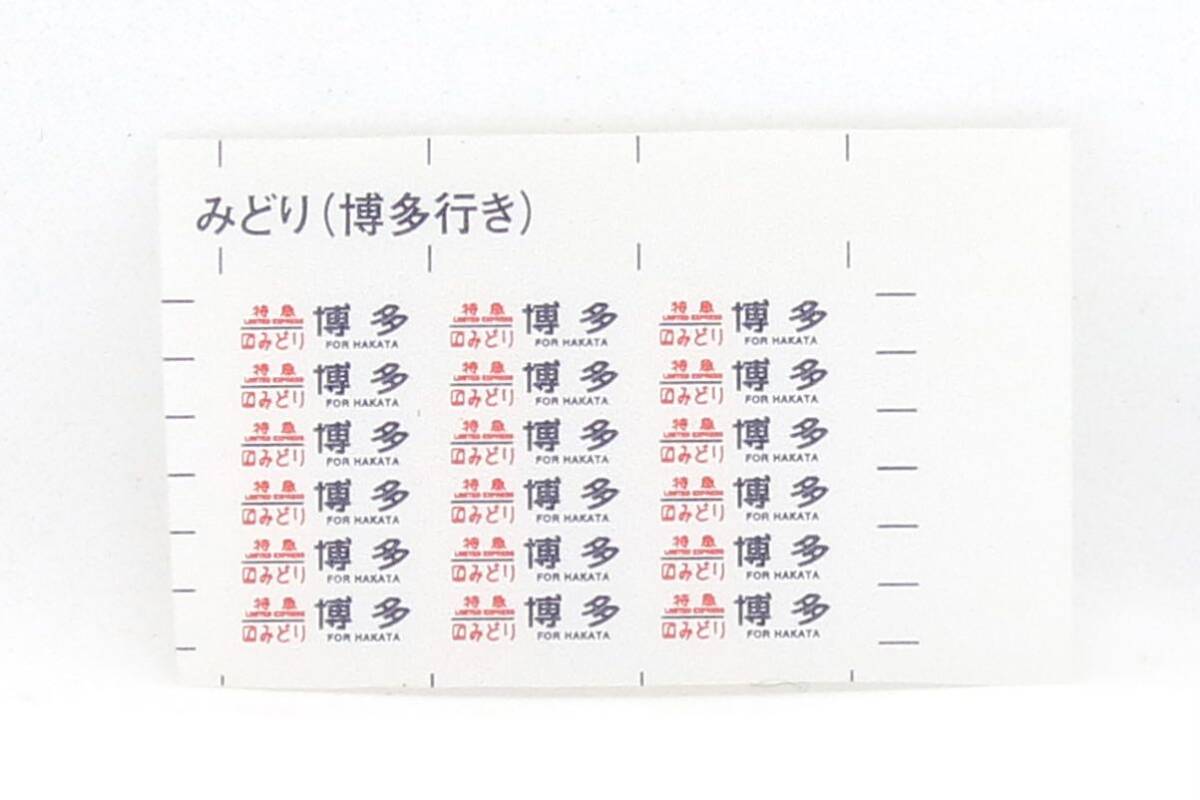 みどり(博多行き)
特急 博多 特急 博多 特急 博多
LIMITED EXPRESS LIMITED EXPRESS LIMITED EXPRESS
みどり FOR HAKATA みどり FOR HAKATA みどり FOR HAKATA
特急 博多 特急 博多 特急 博多
LIMITED EXPRESS LIMITED EXPRESS LIMITED EXPRESS
みどり FOR HAKATA みどり FOR HAKATA みどり FOR HAKATA
特急 博多 特急 博多 特急 博多
LIMITED EXPRESS LIMITED EXPRESS LIMITED EXPRESS
みどり FOR HAKATA みどり FOR HAKATA みどり FOR HAKATA
特急 博多 特急 博多 特急 博多
LIMITED EXPRESS LIMITED EXPRESS LIMITED EXPRESS
みどり FOR HAKATA みどり FOR HAKATA みどり FOR HAKATA
特急 博多 特急 博多 特急 博多
LIMITED EXPRESS LIMITED EXPRESS LIMITED EXPRESS
みどり FOR HAKATA みどり FOR HAKATA みどり FOR HAKATA
特急 博多 特急 博多 特急 博多
LIMITED EXPRESS LIMITED EXPRESS LIMITED EXPRESS
みどり FOR HAKATA みどり FOR HAKATA みどり FOR HAKATA